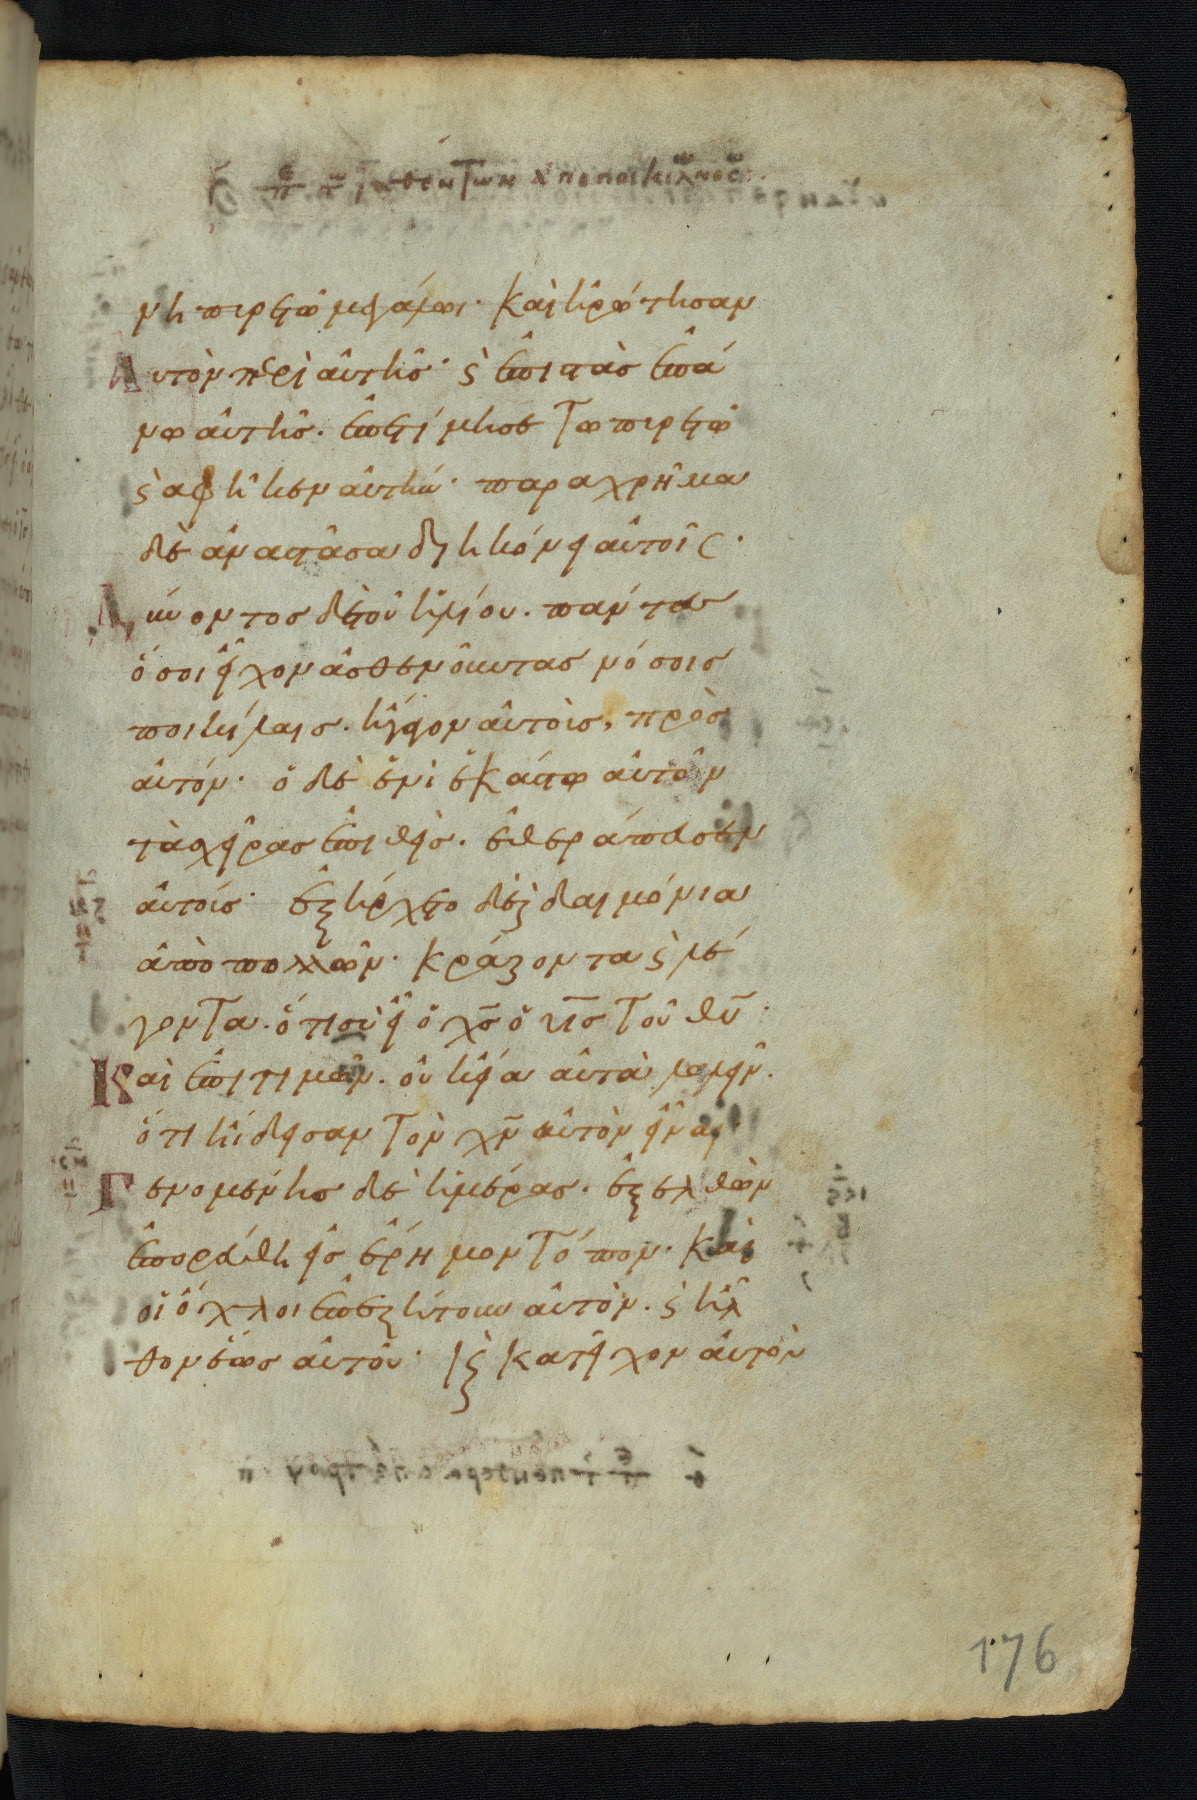 ϛ π̅ε̅ π̅ ἰαθέντων ἀπὸ ποικίλ νοσ
νη πυρετῶ μεγάλωι· Καὶ ἠρώτησαν
Αυτὸν περὶ αὐτῆς· ϛ̀ ἐπιστὰσ ἐπά
νω αὐτῆσ. ἐπετίμησε Τω πυρετῶ
ϛ̀ αφῆκεν αὐτήν· παραχρῆμα
δὲ ἀναστᾶσα διηκόνει αὐτοῖς·
Δύνοντοσ δὲ τοῦ ἡλίου. πάντεσ
ὅσοι εἶχον ἀσθενοῦντασ νόσοισ
ποικίλαισ. ἤγαγον αὐτοὺσ, πρὸσ
αὐτόν· ὁ δὲ ἑνὶ ἑκάστω αὐτῶν
τὰσ χεῖρασ ἐπιθεὶσ. ἐθεράπευσεν
αὐτούσ· ἐξήρχετο δὲ ϛ̀ δαιμόνια
ἀπὸ πολλῶν· κράζοντα ϛ̀ λέ
γοντα. ὅτι σὺ εἶ ὁ χ̅ς̅ ὁ υ̅ι̅σ̅ Τοῦ θ̅υ̅·
Καὶ ἐπιτιμῶν. οὐκ εἴα αὐτὰ λαλεῖν.
ὅτι ἤιδεισαν Τὸν χ̅ν̅ αὐτὸν εἶναι·
Γενομένησ δὲ ἡμέρασ. ἐξελθὼν
ἐπορεύθη εἰσ ἔρημον Τόπον· Καὶ
οἱ ὄχλοι ἐπεζήτουν αὐτὸν. ϛ̀ ἦλ
θον ἕωσ αὐτοῦ· Κϛ̀ κατεῖχον αὐτὸν
176